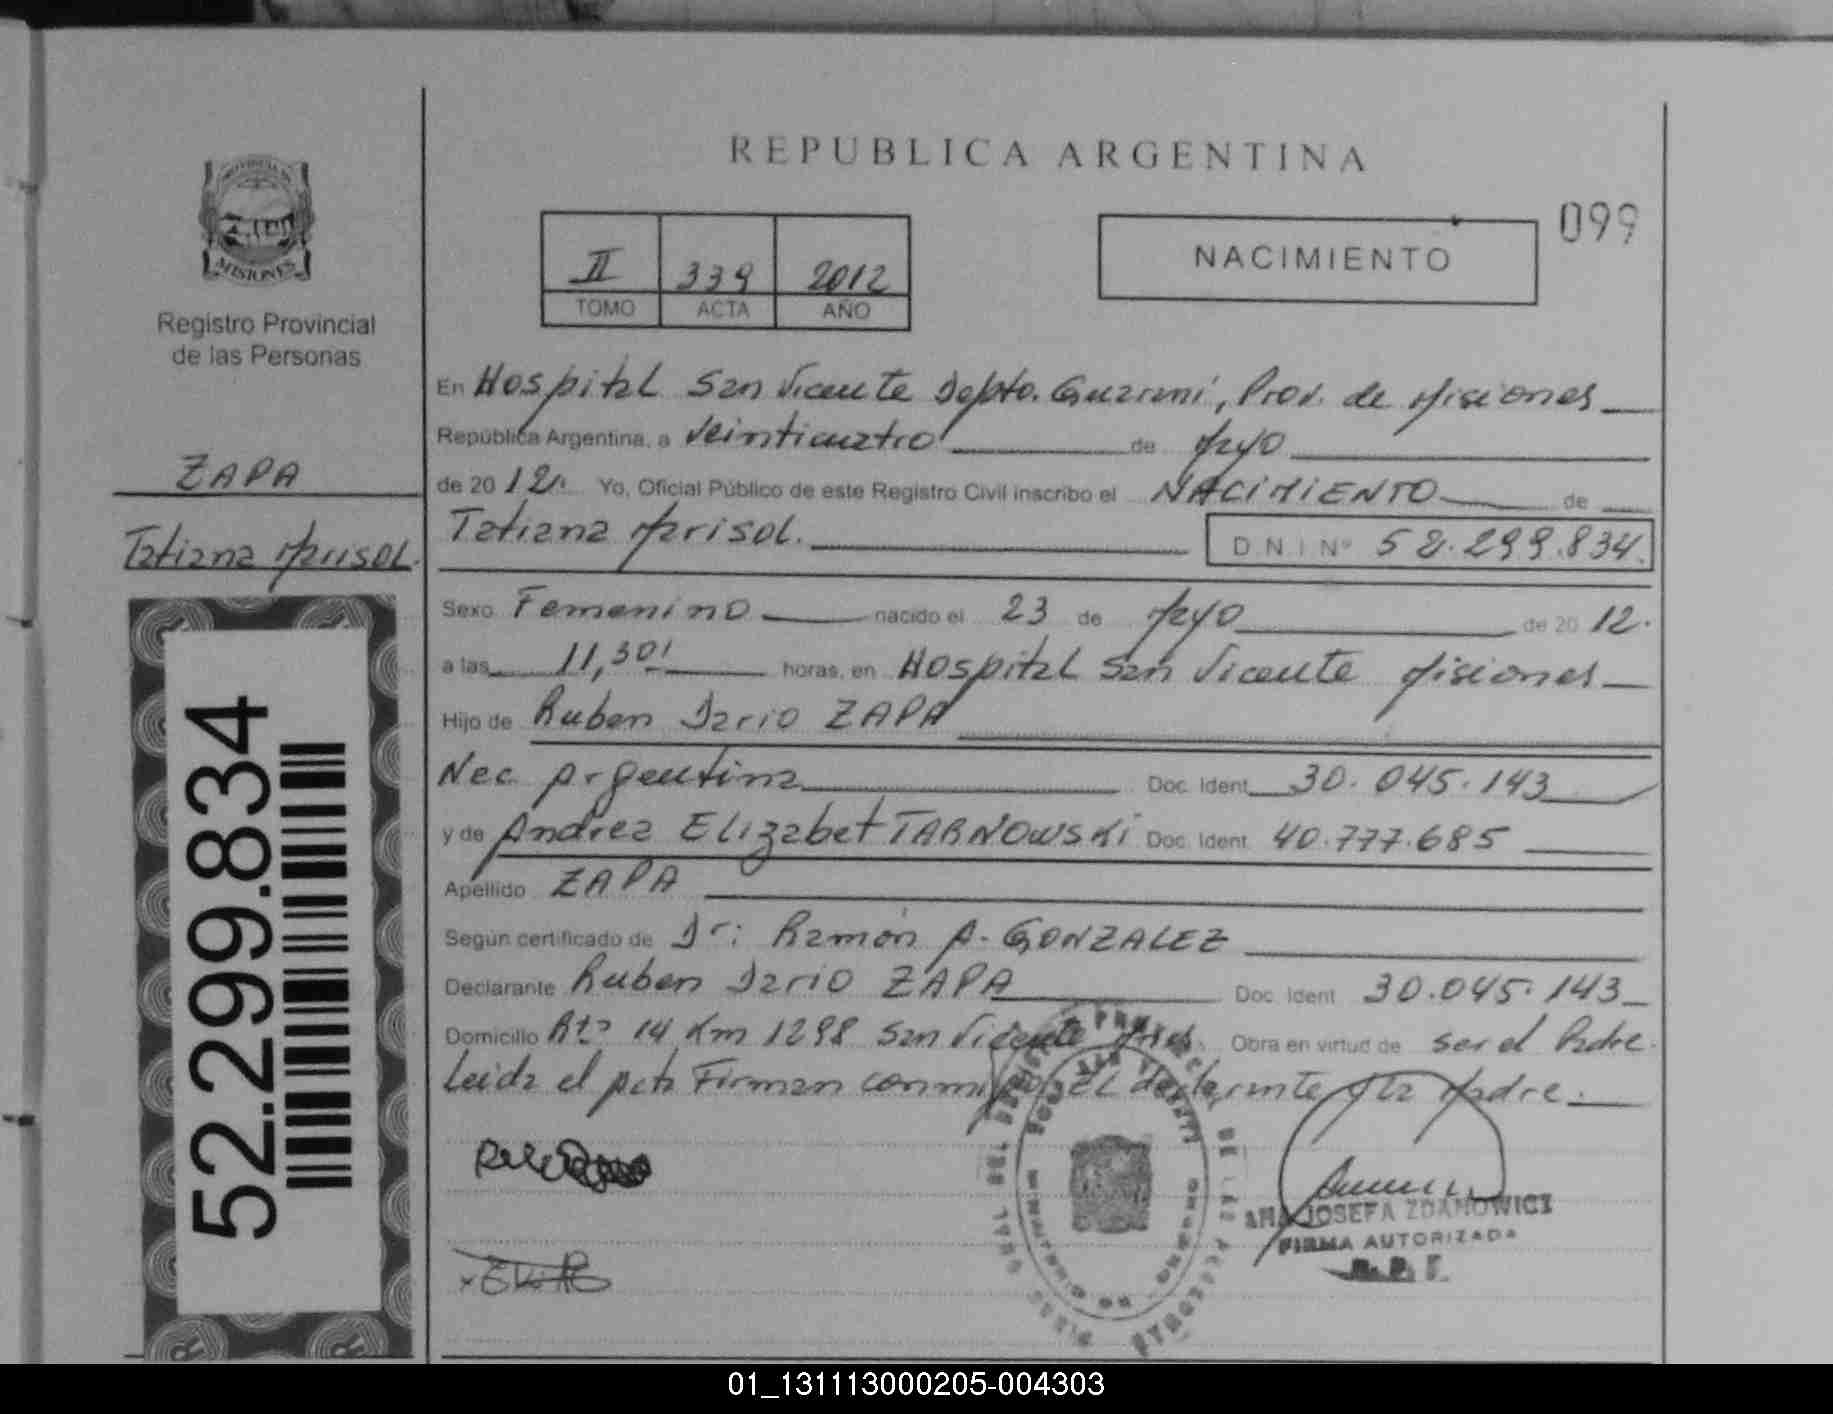 REPUBLICA ARGENTINA
099
II 339 2012
TOMO ACTA AÑO
NACIMIENTO
PROVINCIA DE
MISIONES
Registro Provincial
de las Personas
ZAPA
Tatiana Marisol.
52.299.834
En Hospital San Vicente Depto. Guaraní, Prov. de Misiones
República Argentina, a Veinticuatro de Mayo
de 2012. Yo, Oficial Público de este Registro Civil inscribo el NACIMIENTO de
Tatiana Marisol. D.N.I Nº 52.299.834.
Sexo Femenino nacido el 23 de Mayo de 2012.
a las 11,30' horas, en Hospital San Vicente Misiones
Hijo de Ruben Dario ZAPA
Nac. Argentina Doc. Ident. 30.045.143
y de Andrea Elizabet TARNOWSKI Doc. Ident. 40.777.685
Apellido ZAPA
Según certificado de Dr: Ramón A. GONZALEZ
Declarante Ruben Dario ZAPA Doc. Ident 30.045.143
Domicilio Rta 14 Km 1298 San Vicente Mnes. Obra en virtud de ser el Padre.
Leida el Acta Firman conmigo el declarante y la Madre.
ANA JOSEFA ZDANOWICZ
FIRMA AUTORIZADA
01_131113000205-004303